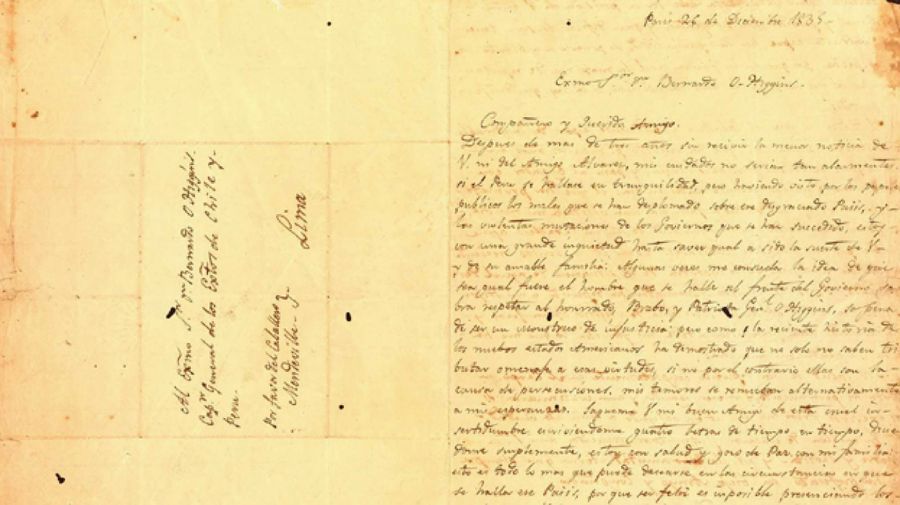 Al Exmo Sor Dn Bernardo O Higgins.
Capn General de los Extos de Chile y
Peru.
Por favor del Caballero
Mendeville.
Lima
Paris 26 de Diciembre 1835
Exmo Sor Dn Bernardo O-Higgins.
Compañero y Querido Amigo.
Despues de mas de tres años sin recivir la menor noticia de
V. ni del Amigo Alvarez, mis cuidados no serian tan alarmentes
si el Peru se hallase en tranquilidad, pero haviendo visto por los papeles
publicos los males que se han desplomado sobre ese desgraciado Pais, y
las violentas mutaciones de los Goviernos que se han succedido, estoy
con una grande inquietud hasta saver qual a sido la suerte de V-
y de su amable familia: Algunas veces me consuela la idea de que
sea qual fuere el hombre que se halle al frente del Govierno sa
bra respetar al honrrado, Brabo, y Patriota Genl O-Higgins, so pena
de ser un monstruo de injusticia: pero como la reciente historia de
los nuebos estados Americanos ha demostrado que no solo no saben tri
butar omenaje a esas virtudes, si no por el contrario ellas son la
causa de persecuciones, mis temores se renueban alternativamente
a mis esperanzas. Saqueme V mi buen Amigo de esta cruel in
sertidumbre enviandome quatro letras de tiempo en tiempo, dicien
dome simplemente, estoy con salud y gozo de Paz con mi familia:
esto es todo lo mas que puede desearse en las circunstancias en que
se halla ese Pais, por que ser felis es imposible presenciando los